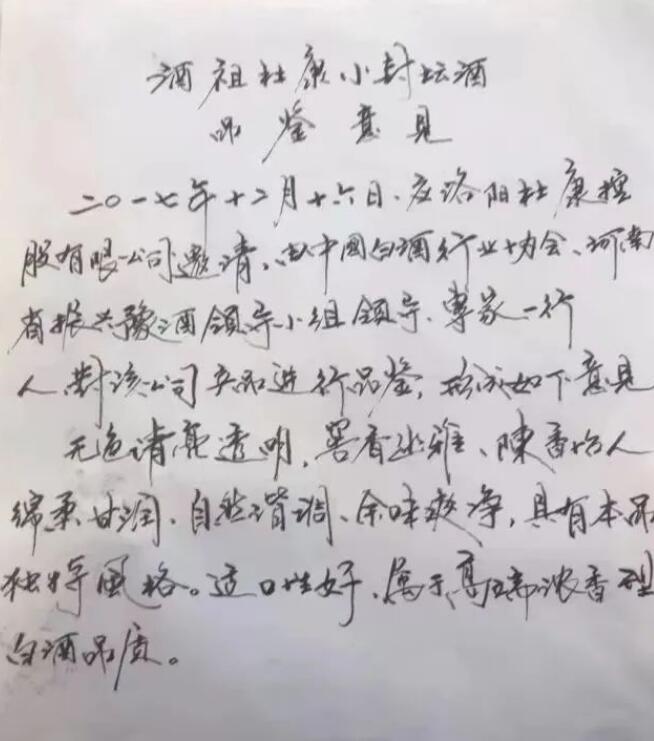 酒祖杜康小封坛酒
品鉴意见
二〇一七年十二月十六日、应洛阳杜康控
股有限公司邀请、以中国白酒行业协会、河南
省振兴豫酒领导小组领导、專家一行
人對该公司产品进行品鉴，形成如下意见
无色请亮透明，窖香幽雅、陳香怡人
绵柔甘润、自然谐调、余味爽净，具有本品
独特風格。适口性好、属于高口部浓香型
白酒品质。